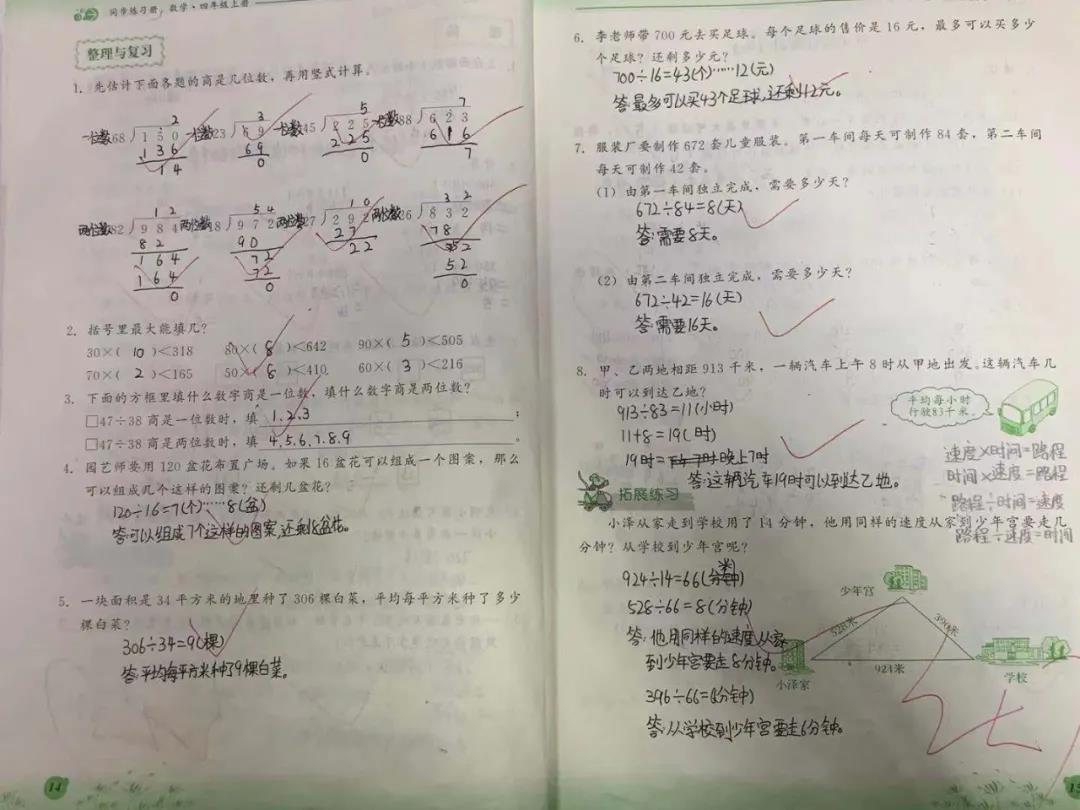 同步练习册·数学·四年级上册
整理与复习
1. 先估计下面各题的商是几位数，再用竖式计算。
一位数 68 150 2 136 14
一位数 23 69 3 69 0
一位数 45 225 5 225 0
一位数 88 623 7 616 7
两位数 82 984 12 82 164 164 0
两位数 18 972 54 90 72 72 0
两位数 27 292 10 27 22
两位数 26 832 32 78 52 52 0
2. 括号里最大能填几？
30×( 10 )<318 80×( 8 )<642 90×( 5 )<505
70×( 2 )<165 50×( 8 )<410 60×( 3 )<216
3. 下面的方框里填什么数字商是一位数，填什么数字商是两位数？
□47÷38商是一位数时，填 1.2.3 ；
□47÷38商是两位数时，填 4.5.6.7.8.9 。
4. 园艺师要用120盆花布置广场。如果16盆花可以组成一个图案，那么
可以组成几个这样的图案？还剩几盆花？
120÷16=7(个)……8(盆)
答:可以组成7个这样的图案,还剩8盆花。
5. 一块面积是34平方米的地里种了306棵白菜，平均每平方米种了多少
棵白菜？
306÷34=9(棵)
答:平均每平方米种了9棵白菜。
14
6. 李老师带700元去买足球。每个足球的售价是16元，最多可以买多少
个足球？还剩多少元？
700÷16=43(个)……12(元)
答:最多可以买43个足球,还剩12元。
7. 服装厂要制作672套儿童服装。第一车间每天可制作84套，第二车间
每天可制作42套。
(1) 由第一车间独立完成，需要多少天？
672÷84=8(天)
答:需要8天。
(2) 由第二车间独立完成，需要多少天？
672÷42=16(天)
答:需要16天。
8. 甲、乙两地相距913千米，一辆汽车上午8时从甲地出发。这辆汽车几
时可以到达乙地？
平均每小时
行驶83千米。
913÷83=11(小时)
11+8=19(时)
19时=晚上7时
答:这辆汽车19时可以到达乙地。
速度×时间=路程
时间×速度=路程
路程÷时间=速度
路程÷速度=时间
拓展练习
小泽从家走到学校用了14分钟，他用同样的速度从家到少年宫要走几
分钟？从学校到少年宫呢？
924÷14=66(米)
528÷66=8(分钟)
答:他用同样的速度从家
到少年宫要走8分钟。
396÷66=6(分钟)
答:从学校到少年宫要走6分钟。
少年宫
528米
396米
924米
小泽家
学校
15